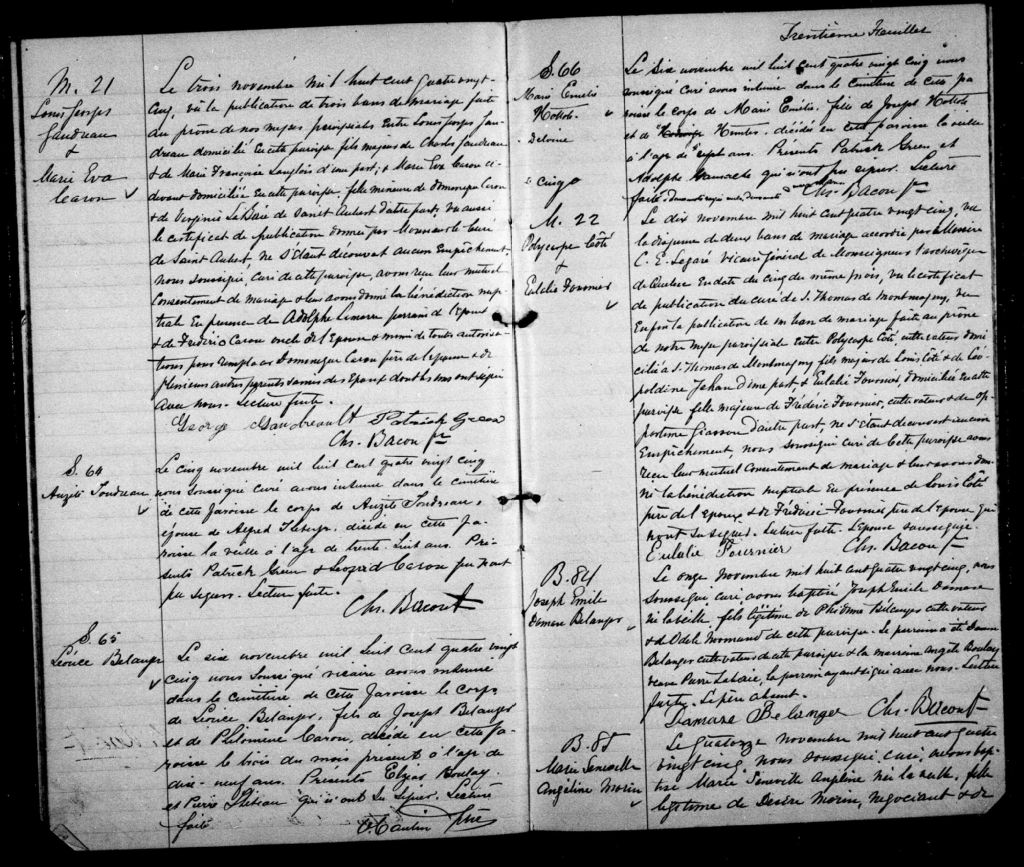 M. 21
Louis Georges
Gaudreau
&
Marie Eva
Caron
Le trois novembre mil huit cent quatre vingt
cinq, vû la publication de trois bans de mariage faite
au prône de nos messes paroissiales entre Louis Georges Gau-
dreau domicilié en cette paroisse fils majeur de Charles Gaudreau
& de Marie Françoise Langlois d'une part, & Marie Eva Caron ci-
devant domiciliée en cette paroisse fille mineure de Dominique Caron
& de Virginie Labbée de Saint Aubert d'autre part, vu aussi
le certificat de publication donnée par Monsieur le curé
de Saint Aubert, ne s'étant découvert aucun empêchement,
nous soussigné, curé de cette paroisse, avons reçu leur mutuel
consentement de mariage & leur avons donné la bénédiction nup-
tiale en présence de Adolphe parrain de l'époux
& de Frédéric Caron oncle de l'épouse & muni de toute autorisa-
tions pour remplacer Dominique Caron père de l'épouse & de
plusieurs autres parents & amis des époux dont les uns ont signé
avec nous. Lecture faite.
George Gaudreault Patrick Green
Chs. Bacon Ptre
S. 64
Auzite Jondreau
Le cinq novembre mil huit cent quatre vingt cinq
nous soussigné curé avons inhumé dans le cimetière
de cette paroisse le corps de Auzite Jondreau,
épouse de Alfred décédée en cette pa-
roisse la veille à l'age de trente-huit ans. Pré-
sents Patrick Green & Léopold Caron qui n'ont
pu signer. Lecture faite.
Chs. Bacon Ptre
S. 65
Léonce Belanger
Le six novembre mil huit cent quatre vingt
cinq nous soussigné vicaire avons inhumé
dans le cimetière de cette paroisse le corps
de Léonce Bélanger, fils de Joseph Bélanger
et de Philomène Caron, décédé en cette pa-
roisse le trois du mois présent à l'age de
dix-neuf ans. Présents Elzéar Boulay
et Pierre qui n'ont su signer. Lecture
faite
Ptre
Trentième Feuillet
S. 66
Marie Emélie
5 cinq
Le six novembre mil huit cent quatre vingt cinq nous
soussigné curé avons inhumé dans le cimetière de cette pa-
roisse le corps de Marie Emélie, fille de Joseph
et de décédée en cette paroisse la veille
à l'age de sept ans. Présents Patrick Green et
Adolphe qui n'ont pu signer. Lecture
faite
Chs. Bacon Ptre
M. 22
Polycarpe Côté
&
Eulalie Fournier
Le dix novembre mil huit cent quatre vingt cinq, vu
la dispense de deux bans de mariage accordée par Messire
C. E. Legaré vicaire général de Monseigneur l'archevêque
de Québec en date du cinq du même mois, vu le certificat
de publication du curé de S. Thomas de Montmagny, vu
enfin la publication de un ban de mariage fait au prône
de notre messe paroissiale entre Polycarpe Côté, cultivateur domi-
cilié à S. Thomas de Montmagny fils majeur de Louis Côté & de Léo-
poldine Jahan d'une part & Eulalie Fournier, domiciliée en cette
paroisse fille majeure de Fréderic Fournier, cultivateur & de Op-
portune Giasson d'autre part, ne s'étant découvert aucun
empêchement, nous soussigné curé de cette paroisse avons
reçu leur mutuel consentement de mariage & leur avons don-
né la bénédiction nuptiale en présence de Louis Côté
père de l'époux & de Fréderic Fournier père de l'épouse qui
n'ont su signer. Lecture faite. L'épouse sait signer.
Eulalie Fournier Chs. Bacon Ptre
B. 84
Joseph Emile
Damase Belanger
Le onze novembre mil huit cent quatre vingt cinq, nous
soussigné, curé avons baptisé Joseph Emile Damase
né la veille, fils légitime de Phidime Bélanger cultivateur
& de Odile Normand de cette paroisse. Le parrain a été Damase
Belanger cultivateur de cette paroisse & la marraine Angèle Boulay
veuve Pierre le parrain ayant signé avec nous. Lecture
faite. Le père absent.
Damase Belanger Chs. Bacon Ptre
B. 85
Marie
Angéline Morin
Le quatorze novembre mil huit cent quatre
vingt cinq, nous soussigné, curé, avons bap-
tisé Marie Angéline née la veille, fille
légitime de Désiré Morin, négociant & de